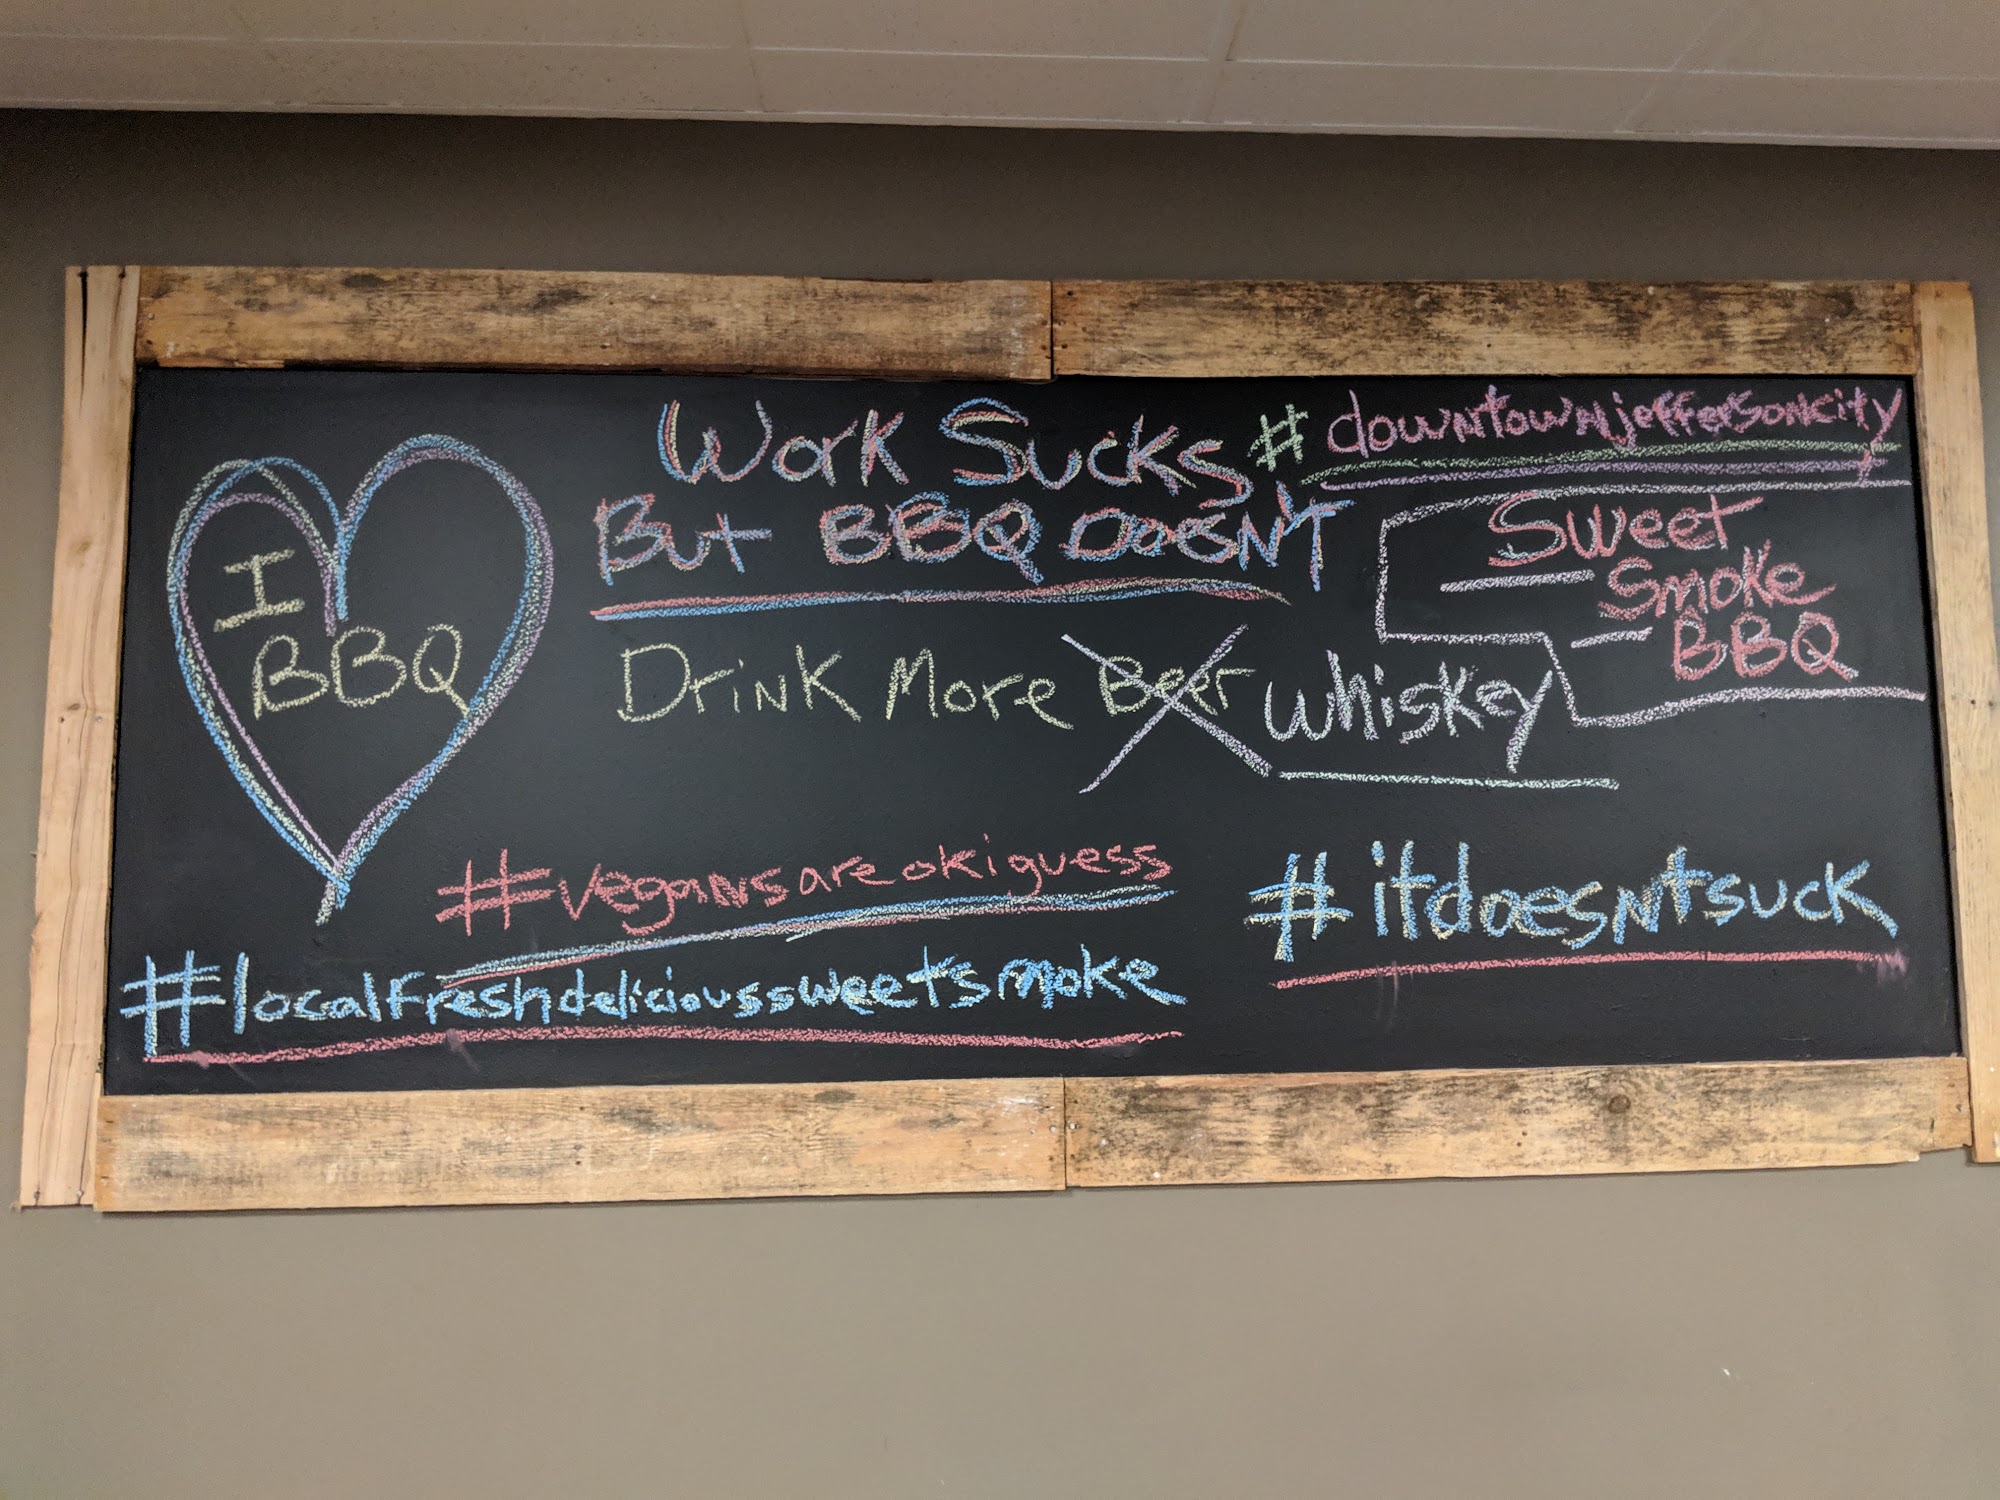 I
BBQ
Work Sucks
But BBQ Doesn't
#downtownjeffersoncity
Sweet
Smoke
BBQ
Drink More Beer Whiskey
#vegansareokiguess
#itdoesntsuck
#localfreshdelicioussweetsmoke